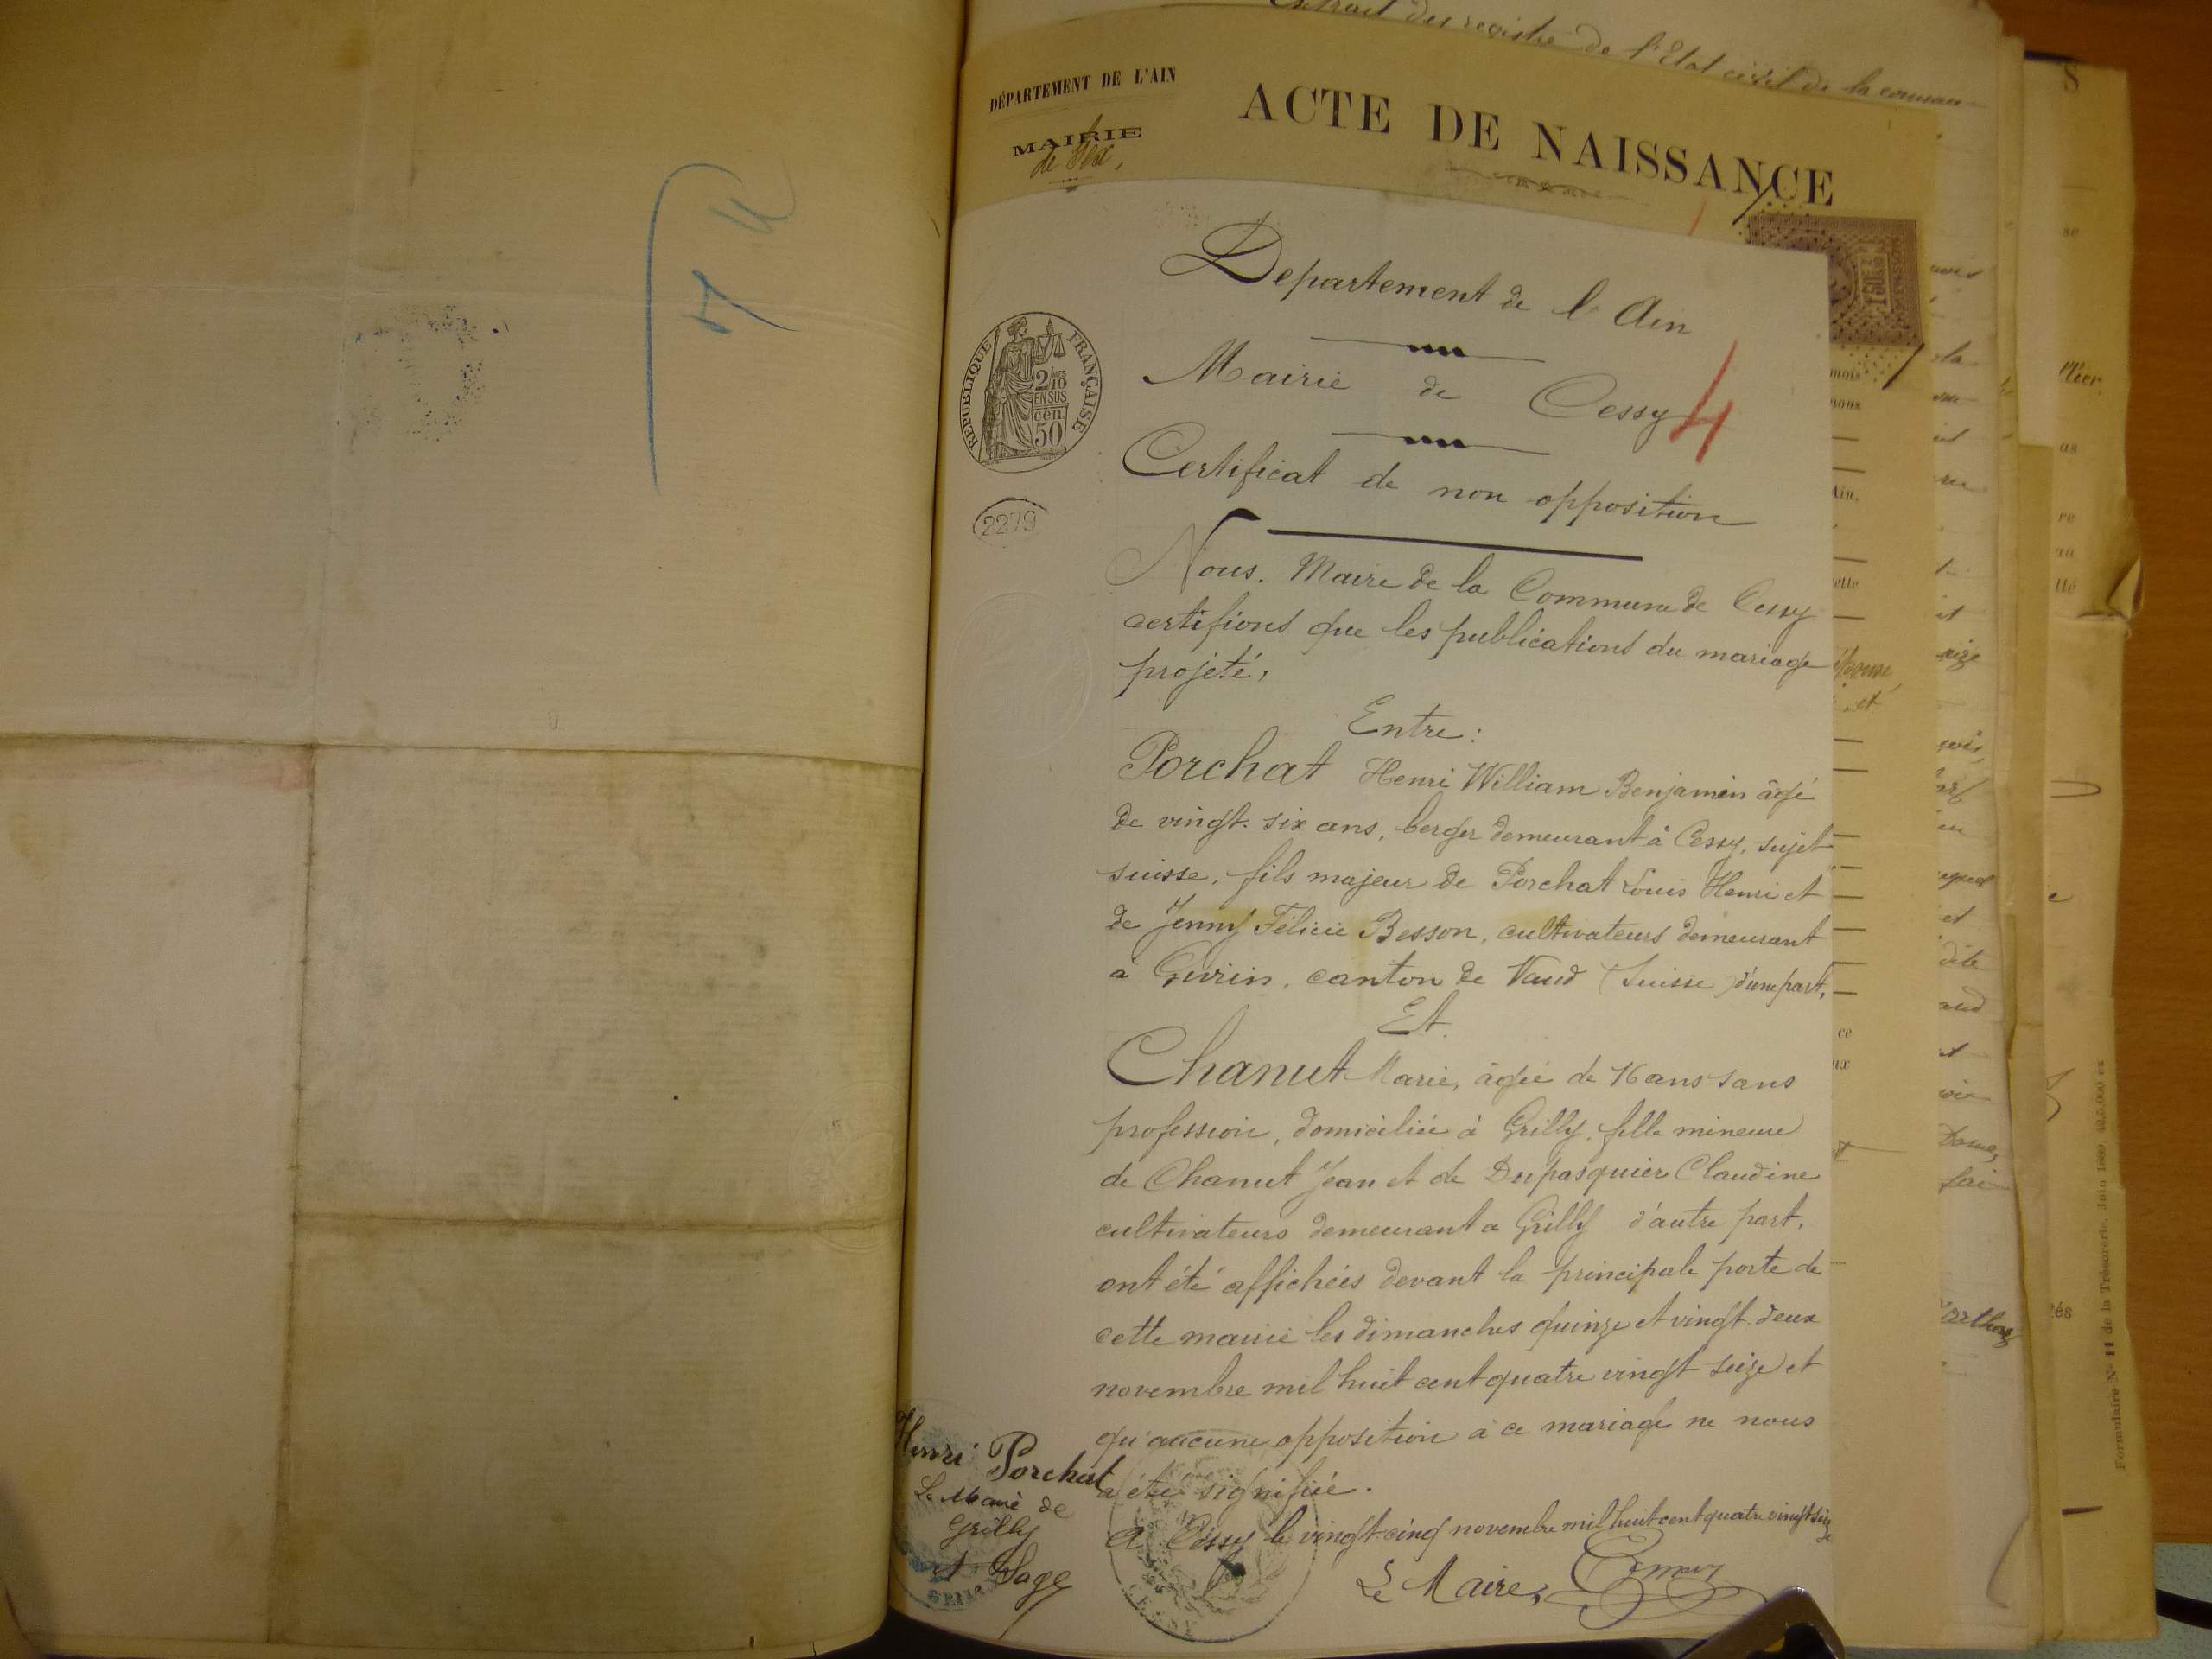 Extrait des registre de l'Etat civil de la commun
DÉPARTEMENT DE L'AIN
MAIRIE
de Gex,
ACTE DE NAISSANCE
Departement de l'Ain
Mairie de Cessy
4
Certificat de non opposition
RÉPUBLIQUE FRANÇAISE
2/10
EN SUS
cen
50
2279
Nous. Maire de la Commune de Cessy
certifions que les publications du mariage
projeté,
Entre :
Porchat Henri William Benjamin âgé
de vingt-six ans, berger demeurant à Cessy, sujet
suisse, fils majeur de Porchat Louis Henri et
de Jenny Félicie Besson, cultivateurs demeurant
à Givrin, canton de Vaud (Suisse) d'une part,
Et
Chanut Marie, âgée de 16 ans sans
profession, domiciliée à Grilly, fille mineure
de Chanut Jean et de Dupasquier Claudine
cultivateurs demeurant a Grilly d'autre part,
ont été affichées devant la principale porte de
cette mairie les dimanches quinze et vingt-deux
novembre mil huit cent quatre vingt seize et
qu'aucune opposition à ce mariage ne nous
a été signifiée.
A Cessy le vingt-cinq novembre mil huit cent quatre vingt seize
Le Maire,
Henri Porchat
Le Maire de
Grilly
Sage
Formulaire N° 11 de la Trésorerie. Juin 1889.